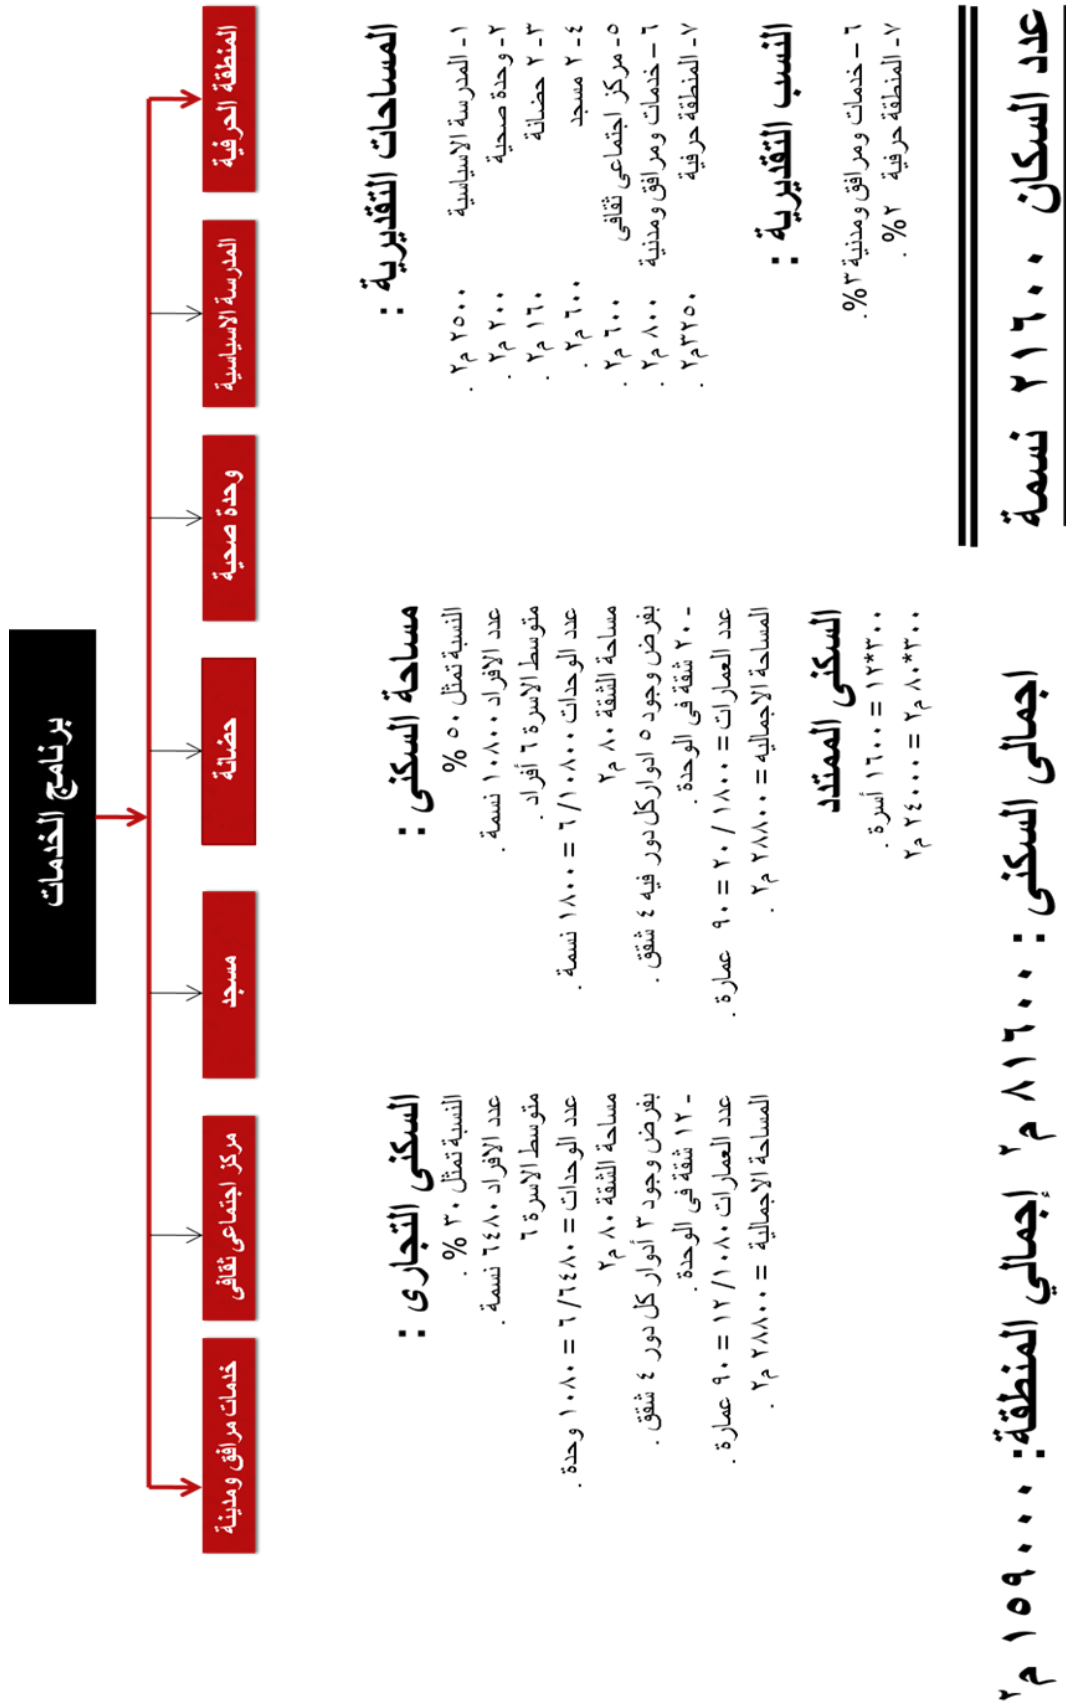 برنامج الخدمات
المنطقة الحرفية
المدرسة الاسياسية
وحدة صحية
حضانة
مسجد
مركز اجتماعى ثقافى
خدمات مرافق ومدينة
المساحات التقديرية :
١- المدرسة الاسياسية ٢٥٠٠ م٢ .
٢- وحدة صحية ٢٠٠ م٢ .
٣- ٢ حضانة ١٦٠ م٢ .
٤- ٢ مسجد ٦٠٠ م٢ .
٥- مركز اجتماعى ثقافى ٦٠٠ م٢ .
٦– خدمات ومرافق ومدنية ٨٠٠ م٢ .
٧- المنطقة حرفية ٣٢٥٠م٢ .
النسب التقديرية :
٦– خدمات ومرافق ومدنية ٣%.
٧- المنطقة حرفية ٢% .
مساحة السكنى :
النسبة تمثل ٥٠ %
عدد الافراد ١٠٨٠٠ نسمة .
متوسط الاسرة ٦ أفراد .
عدد الوحدات ٦/١٠٨٠٠ = ١٨٠٠ نسمة .
مساحة الشقة ٨٠ م٢
بفرض وجود ٥ ادواركل دور فيه ٤ شقق .
- ٢٠٠ شقة فى الوحدة .
عدد العمارات = ٢٠/١٨٠٠ = ٩٠ عمارة .
المساحة الاجماليه = ٢٨٨٠٠ م٢ .
السكنى الممتدد
٣٠٠*١٢ = ١٦٠٠ أسرة .
٣٠٠*٨٠ م٢ = ٢٤٠٠٠ م٢
السكنى التجارى :
النسبة تمثل ٣٠ % .
عدد الافراد ٦٤٨٠ نسمة .
متوسط الاسرة ٦
عدد الوحدات = ٦/٦٤٨٠ = ١٠٨٠ وحدة .
مساحة الشقة ٨٠ م٢
بفرض وجود ٣ أدوار كل دور ٤ شقق .
- ١٢ شقة فى الوحدة .
عدد العمارات ١٢/١٠٨٠ = ٩٠ عمارة .
المساحة الاجمالية = ٢٨٨٠٠ م٢ .
عدد السكان ٢١٦٠٠ نسمة
اجمالى السكنى : ٨١٦٠٠ م٢ إجمالي المنطقة: ١٥٩٠٠٠ م٢